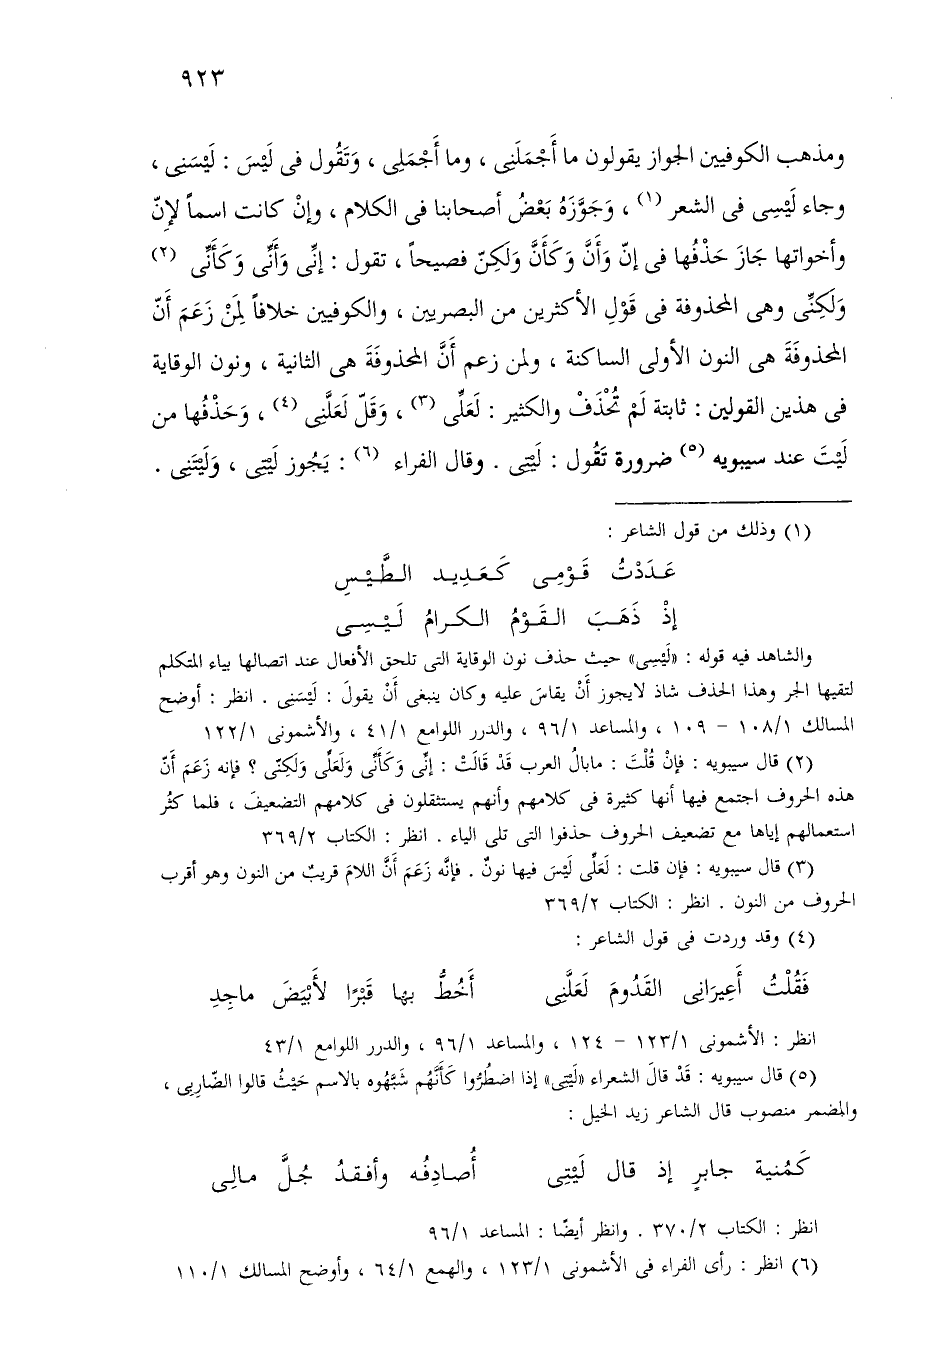 ٩٢٣
ومذهب الكوفيين الجواز يقولون ما أَجْمَلَنِى ، وما أَجْمَلِى ، وَتَقُول فى لَيْسَ : لَيْسَنِى ،
وجاء لَيْسِى فى الشعر (١) ، وَجَوَّزَهُ بَعْضُ أصحابنا فى الكلام ، وإنْ كانت اسماً لإنّ
وأخواتها جَازَ حَذْفُها فى إنّ وَأَنَّ وَكَأَنَّ وَلَكِنّ فصيحاً ، تقول : إنِّى وَأَنِّى وَكَأَنِّى (٢)
وَلَكِنِّى وهى المحذوفة فى قَوْلِ الأكثرين من البصريين ، والكوفيين خلافاً لِمَنْ زَعَمَ أَنَّ
المحذوفَةَ هى النون الأولى الساكنة ، ولمن زعم أَنَّ المحذوفَةَ هى الثانية ، ونون الوقاية
فى هذين القولين : ثابتة لَمْ تُحْذَفْ والكثير : لَعَلِّى (٣) ، وَقَلّ لَعَلَّنِى (٤) ، وَحَذْفُها من
لَيْتَ عند سيبويه (٥) ضرورة تَقُول : لَيْتِى . وقال الفراء (٦) : يَجُوز لَيْتِى ، وَلَيْتَنِى .
(١) وذلك من قول الشاعر :
عَدَدْتُ قَوْمِى كَعَدِيد الطَّيْسِ
إذْ ذَهَبَ القَوْمُ الكرامُ لَيْسِى
والشاهد فيه قوله : «لَيْسِى» حيث حذف نون الوقاية التى تلحق الأفعال عند اتصالها بياء المتكلم
لتقيها الجر وهذا الحذف شاذ لايجوز أَنْ يقاسَ عليه وكان ينبغى أَنْ يقولَ : لَيْسَنِى . انظر : أوضح
المسالك ١٠٨/١ – ١٠٩ ، والمساعد ٩٦/١ ، والدرر اللوامع ٤١/١ ، والأشمونى ١٢٢/١
(٢) قال سيبويه : فإنْ قُلْتَ : مابالُ العرب قَدْ قَالَتْ : إنِّى وَكَأَنِّى وَلَعَلِّى وَلَكِنِّى ؟ فإنه زَعَمَ أَنّ
هذه الحروف اجتمع فيها أنها كثيرة فى كلامهم وأنهم يستثقلون فى كلامهم التضعيفَ ، فلما كثُر
استعمالهم إياها مع تضعيف الحروف حذفوا التى تلى الياء . انظر : الكتاب ٣٦٩/٢
(٣) قال سيبويه : فإن قلت : لَعَلِّى لَيْسَ فيها نونٌ . فإنَّه زَعَمَ أَنَّ اللامَ قريبٌ من النون وهو أقرب
الحروف من النون . انظر : الكتاب ٣٦٩/٢
(٤) وقد وردت فى قول الشاعر :
فَقُلْتُ أَعِيرَانِى القَدُومَ لَعَلَّنِى أَخُطُّ بها قَبْرًا لأَبْيَضَ ماجِدِ
انظر : الأشمونى ١٢٣/١ – ١٢٤ ، والمساعد ٩٦/١ ، والدرر اللوامع ٤٣/١
(٥) قال سيبويه : قَدْ قالَ الشعراء «لَيْتِى» إذا اضطُرُّوا كَأَنَّهُم شَبَّهُوه بالاسم حَيْثُ قالوا الضّارِبِى ،
والمضمر منصوب قال الشاعر زيد الخيل :
كَمُنية جابرٍ إذ قال لَيْتِى أُصادِفُه وأفقدُ جُلَّ مالِى
انظر : الكتاب ٣٧٠/٢ . وانظر أيضًا : المساعد ٩٦/١
(٦) انظر : رأى الفراء فى الأشمونى ١٢٣/١ ، والهمع ٦٤/١ ، وأوضح المسالك ١١٠/١